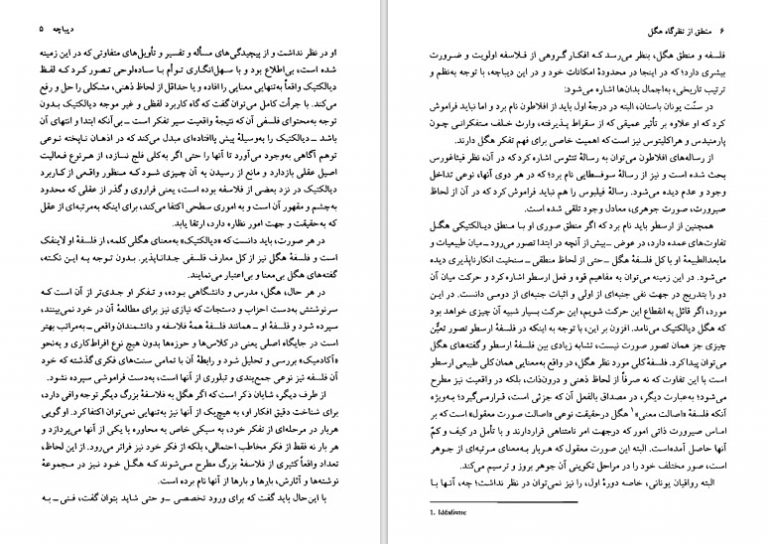 دیباچه ۵
او در نظر نداشت و از پیچیدگی‌های مسأله و تفسیر و تأویل‌های متفاوتی که در این زمینه
شده است، بی‌اطلاع بود و با سهل‌انگاری توأم با ساده‌لوحی تصور کرد که لفظ
دیالکتیک واقعاً به‌تنهایی معنایی را افاده و یا حداقل از لحاظ ذهنی، مشکلی را حل و رفع
می‌کند. با جرأت کامل می‌توان گفت که گاه کاربرد لفظی و غیر موجه دیالکتیک بدون
توجه به‌محتوای فلسفی آن که نتیجهٔ واقعیت سیر تفکر است ــ بی‌آنکه ابتدا و انتهای آن
باشد ــ دیالکتیک را به‌وسیلهٔ پیش پاافتاده‌ای مبدل می‌کند که در اذهان ناپخته نوعی
توهم آگاهی به‌وجود می‌آورد تا آنها را حتی اگر به‌کلی فلج نسازد، از هرنوع فعالیت
اصیل عقلی بازدارد و مانع از رسیدن به آن چیزی شود که منظور واقعی از کاربرد
دیالکتیک در نزد بعضی از فلاسفه بوده است، یعنی فراروی و گذر از عقلی که محدود
به‌چشم و مقهور آن است و به اموری سطحی اکتفا می‌کند، برای اینکه به‌مرتبه‌ای از عقل
که به‌حقیقت و جهت امور نظاره دارد، ارتقا یابد.
در هر صورت، باید دانست که «دیالکتیک» به‌معنای هگلی کلمه، از فلسفهٔ او لاینفک
است و فلسفهٔ هگل نیز از کل معارف فلسفی جداناپذیر. بدون توجه به این نکته،
گفته‌های هگل بی‌معنا و بی‌اعتبار می‌نمایند.
در هر حال، هگل، مدرس و دانشگاهی بوده، و تفکر او جدی‌تر از آن است که
سرنوشتش به‌دست احزاب و دستجات که نیازی نیز برای مطالعهٔ آن در خود نمی‌بینند،
سپرده شود و فلسفهٔ او ــ همانند فلسفهٔ همهٔ فلاسفه و دانشمندان واقعی ــ به‌مراتب بهتر
است در جایگاه اصلی یعنی در کلاس‌ها و حوزه‌ها بدون هیچ نوع افراط‌کاری و به‌نحو
«آکادمیک» بررسی و تحلیل شود و رابطهٔ آن با تمامی سنت‌های فکری گذشته که خود
آن فلسفه نیز نوعی جمع‌بندی و تبلوری از آنها است، به‌دست فراموشی سپرده نشود.
از طرف دیگر، شایان ذکر است که اگر هگل به فلاسفهٔ بزرگ دیگر توجه وافی دارد،
برای شناخت دقیق افکار او، به هیچ‌یک از آنها نیز به‌تنهایی نمی‌توان اکتفا کرد. او گویی
هربار در مرحله‌ای از تفکر خود، به سبکی خاص به محاوره با یکی از آنها می‌پردازد و
هر بار نه فقط از فکر مخاطب احتمالی، بلکه از فکر خود نیز فراتر می‌رود. از این لحاظ،
تعداد واقعاً کثیری از فلاسفهٔ بزرگ مطرح می‌شوند که هگل خود نیز در مجموعهٔ
نوشته‌ها و آثارش، بارها و بارها از آنها نام برده است.
با این‌حال باید گفت که برای ورود تخصصی ــ و حتی شاید بتوان گفت، فنی ــ به
۶ منطق از نظرگاه هگل
فلسفه و منطق هگل، بنظر می‌رسد که افکار گروهی از فلاسفه اولویت و ضرورت
بیشتری دارد؛ که در اینجا در محدودهٔ امکانات خود و در این دیباچه، با توجه به‌نظم و
ترتیب تاریخی، به‌اجمال بدان‌ها اشاره می‌شود:
در سنّت یونان باستان، البته در درجهٔ اول باید از افلاطون نام برد و اما نباید فراموش
کرد که او علاوه بر تأثیر عمیقی که از سقراط پذیرفته، وارث خلف متفکرانی چون
پارمنیدس و هراکلیتوس نیز است که اهمیت خاصی برای فهم تفکر هگل دارند.
از رساله‌های افلاطون می‌توان به رسالهٔ تئتتوس اشاره کرد که در آن، نظر فیثاغورس
بحث شده است و نیز از رسالهٔ سوفسطایی نام برد؛ که در هر دوی آنها، نوعی تداخل
وجود و عدم دیده می‌شود. رسالهٔ فیلبوس را هم نباید فراموش کرد که در آن از لحاظ
صیرورت، صورت جوهری، معادل وجود تلقی شده است.
همچنین از ارسطو باید نام برد که اگر منطق صوری او با منطق دیالکتیکی هگل
تفاوت‌های عمده دارد، در عوض ــ بیش از آنچه در ابتدا تصور می‌رود ــ میان طبیعیات و
مابعدالطبیعهٔ او با کل فلسفهٔ هگل ــ حتی از لحاظ منطقی ــ سنخیت انکارناپذیری دیده
می‌شود. در این زمینه می‌توان به مفاهیم قوه و فعل ارسطو اشاره کرد و حرکت میان آن
دو را بتدریج در جهت نفی جنبه‌ای از اولی و اثبات جنبه‌ای از دومی دانست. در این
مورد، اگر قائل به انقطاع این حرکت شویم، این حرکت بسیار شبیه آن چیزی خواهد بود
که هگل دیالکتیک می‌نامد. افزون بر این، با توجه به اینکه در فلسفهٔ ارسطو تصور تعیّن
چیزی جز همان تصور صورت نیست، تشابه زیادی بین فلسفهٔ ارسطو و گفته‌های هگل
می‌توان پیدا کرد. فلسفهٔ کلی مورد نظر هگل، در واقع به‌معنایی همان کلی طبیعی ارسطو
است با این تفاوت که نه صرفاً از لحاظ ذهنی و درون‌ذات، بلکه در واقعیت نیز مطرح
می‌شود؛ به‌عبارت دیگر، در مصداق بالفعل آن که جزئی است، قرار می‌گیرد؛ به‌ویژه
آنکه فلسفهٔ «اصالت معنی»¹ هگل درحقیقت نوعی «اصالت صورت معقول» است که بر
اساس صیرورت ذاتی امور که درجهت امر نامتناهی قراردارند و با تأمل در کیف و کمّ
آنها حاصل آمده‌است. البته این صورت معقول که هربار به‌معنای مرتبه‌ای از جوهر
است، صور مختلف خود را در مراحل تکوینی آن جوهر بروز و ترسیم می‌کند.
البته رواقیان یونانی، خاصه دورهٔ اول، را نیز نمی‌توان در نظر نداشت؛ چه، آنها بـا
1. Idéalisme